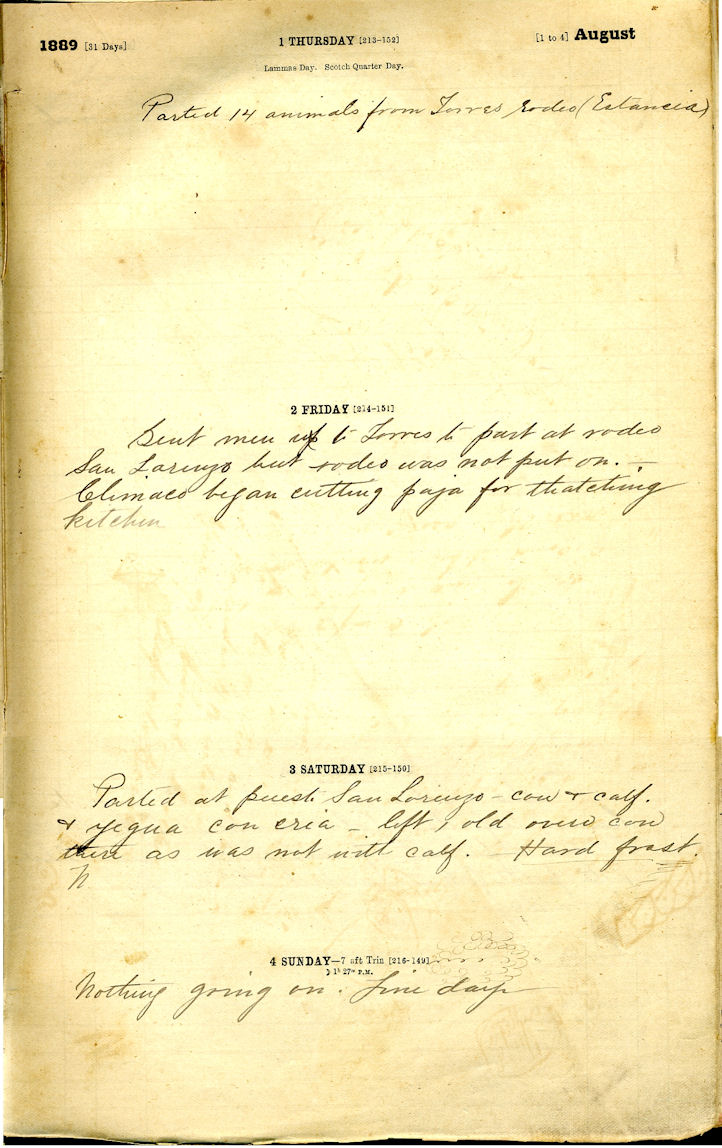 1889 [31 Days]
1 THURSDAY [213-152]
[1 to 4] August
Lammas Day. Scotch Quarter Day.
Parted 14 animals from Torres rodeo (Estancia)
2 FRIDAY [214-151]
Sent men up to Torres to part at rodeo
San Lorenzo but rodeo was not put on. –
Climaco began cutting paja for thatching
kitchen
3 SATURDAY [215-150]
Parted at puesto San Lorenzo – cow + calf.
+ yegua con cria – left 1 old overo cow
there as was not with calf. – Hard frost.
N
4 SUNDAY—7 aft Trin [216-149]
☽ 1h 27m P.M.
Nothing going on. Fine day